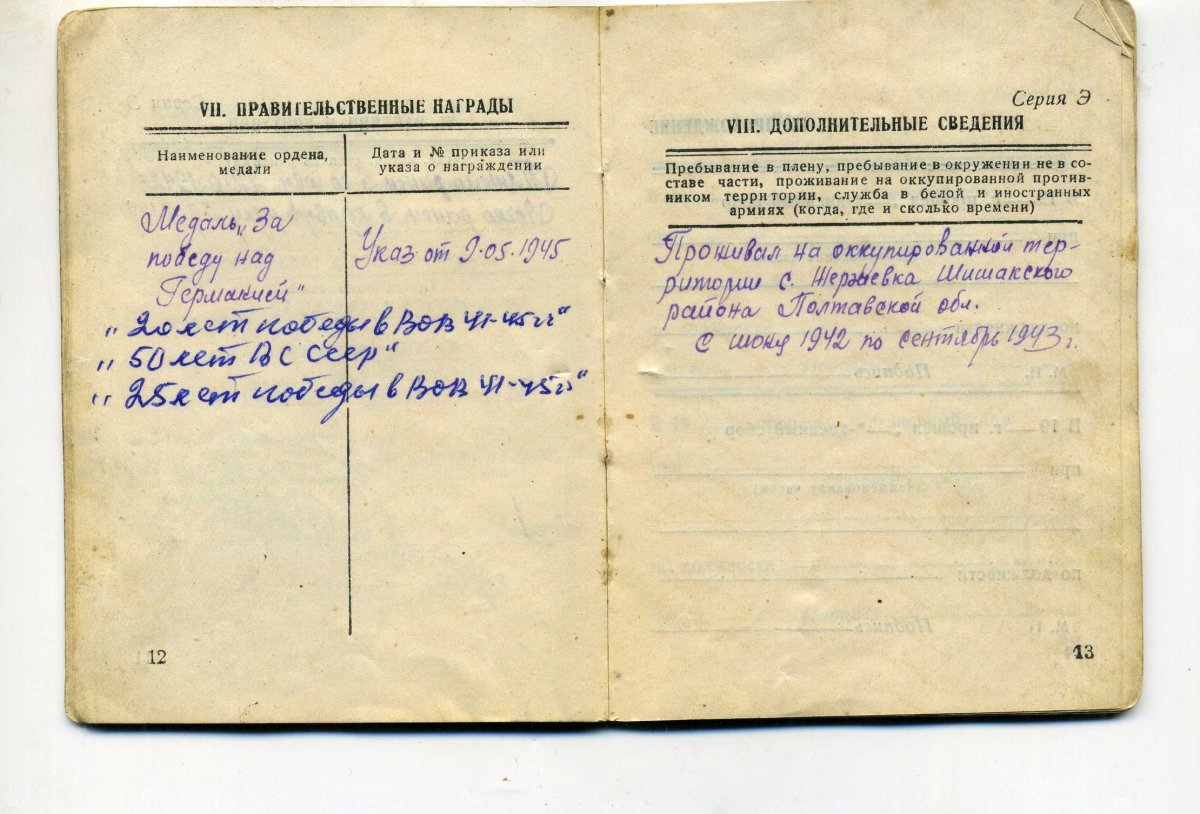 VII. ПРАВИТЕЛЬСТВЕННЫЕ НАГРАДЫ
Наименование ордена,
медали
Дата и № приказа или
указа о награждении
Медаль „За
победу над
Германией"
Указ от 9.05.1945
„20 лет победы в ВОВ 41-45 гг"
„50 лет ВС СССР"
„25 лет победы в ВОВ 41-45 гг"
12
Серия Э
VIII. ДОПОЛНИТЕЛЬНЫЕ СВЕДЕНИЯ
Пребывание в плену, пребывание в окружении не в со-
ставе части, проживание на оккупированной против-
ником территории, служба в белой и иностранных
армиях (когда, где и сколько времени)
Проживал на оккупированной тер-
ритории с. Шишакского
района Полтавской обл.
с июня 1942 по сентябрь 1943 г.
13